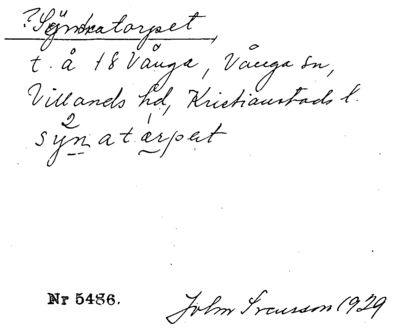 t. å 18 Vånga, Vånga sn,
Villands hd, Kristianstads l.
synatarpet
Nr 5486.
John Svensson 1929